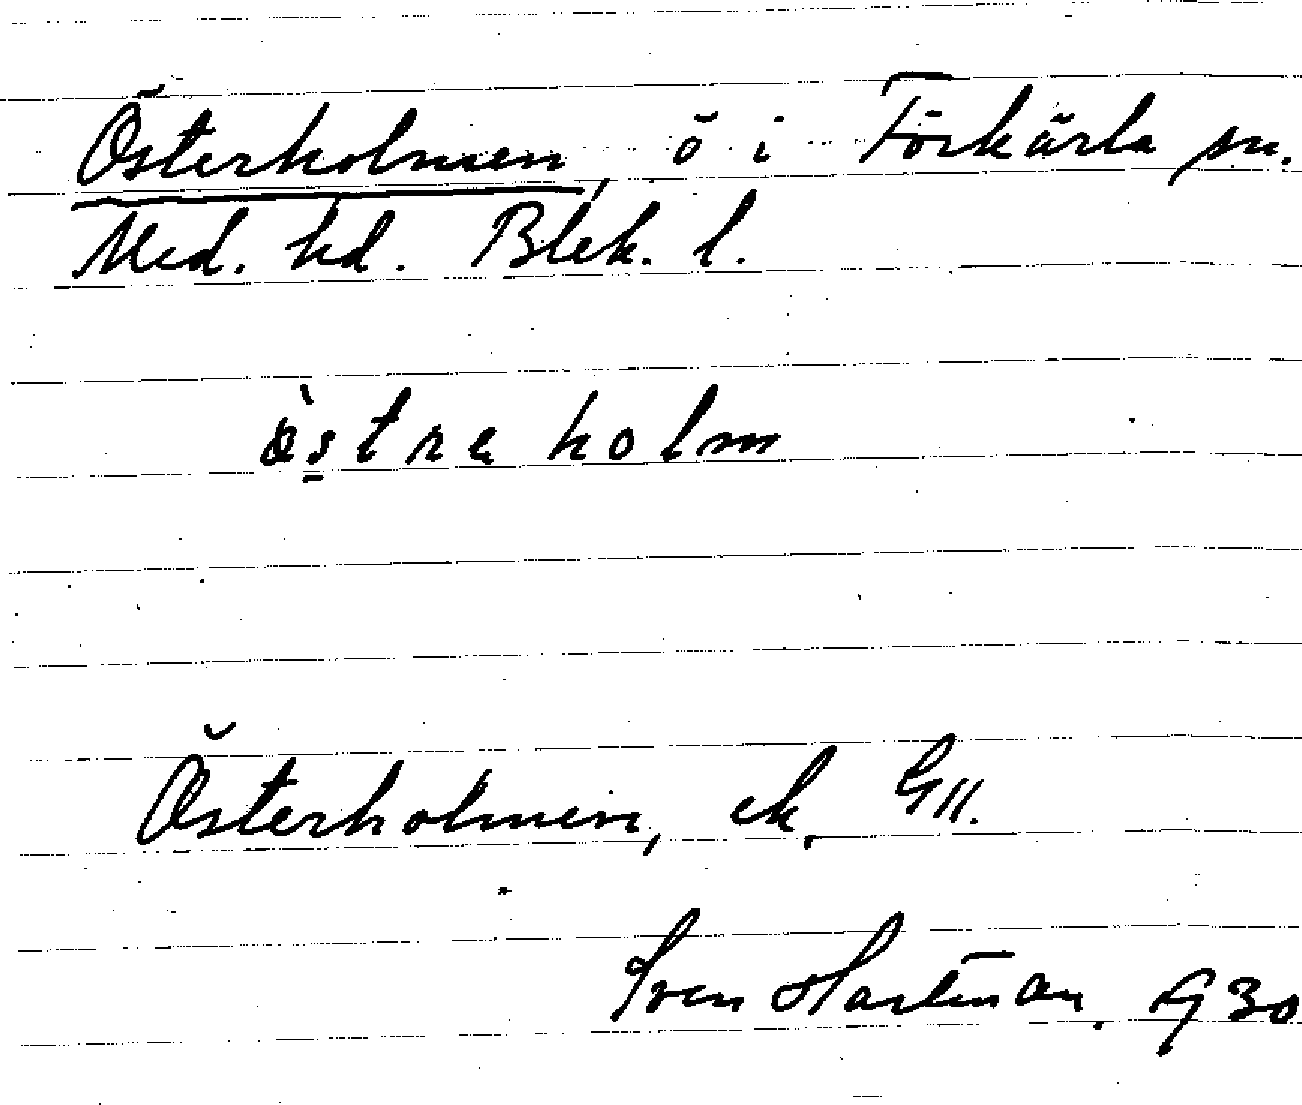 Österholmen, ö i Förkärla sn.
Med. hd. Blek. l.
östreholm
Österholmen, ek, GII.
Sven Hartman. 930